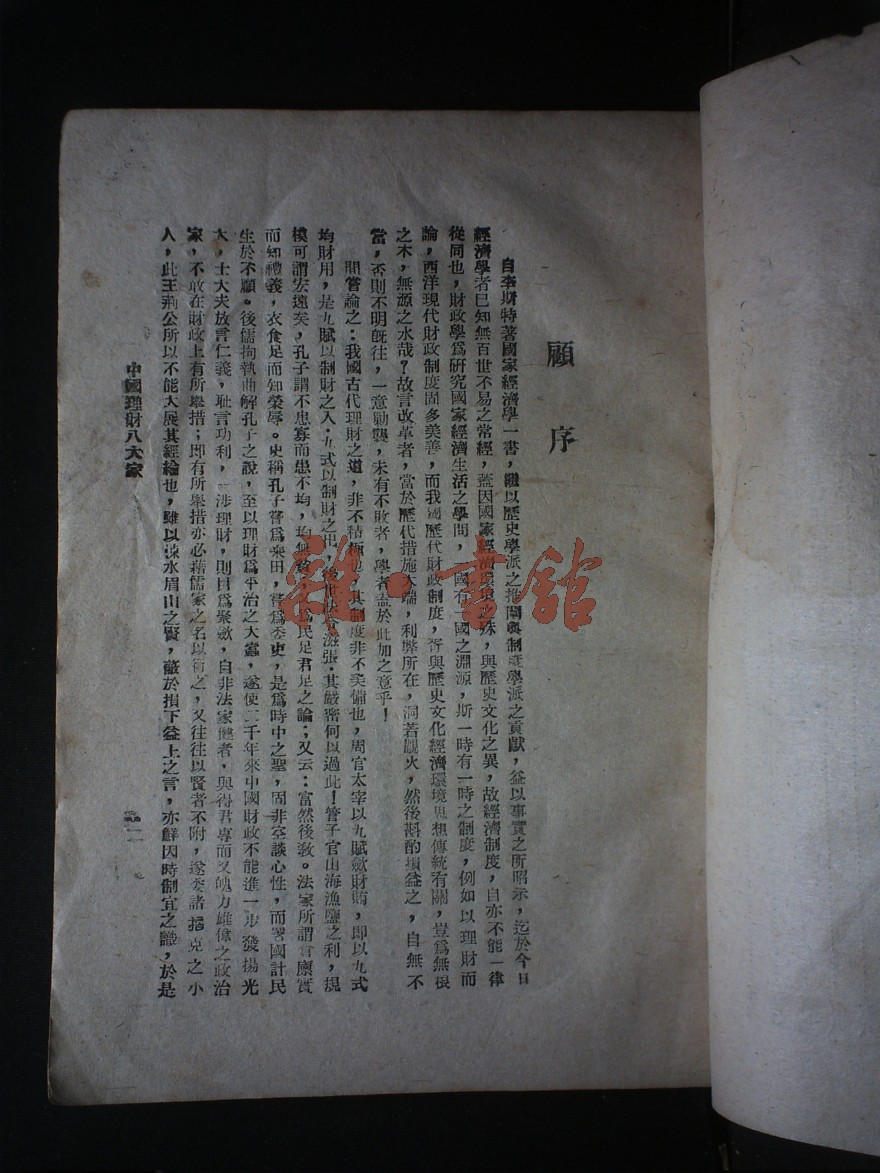 顧序
自李斯特著國家經濟學一書，繼以歷史學派之推闡與制度學派之貢獻，益以事實之所昭示，迄於今日
經濟學者已知無百世不易之常經，蓋因國家經濟環境之殊，與歷史文化之異，故經濟制度，自亦不能一律
從同也，財政學爲研究國家經濟生活之學問，一國有一國之淵源，斯一時有一時之制度，例如以理財而
論，西洋現代財政制度固多美善，而我國歷代財政制度，胥與歷史文化經濟環境思想傳統有關，豈爲無根
之木，無源之水哉？故言改革者，當於歷代措施大端，利弊所在，洞若觀火，然後斟酌損益之，自無不
當，否則不明旣往，一意勦襲，未有不敗者，學者盍於此加之意乎！
間嘗論之：我國古代理財之道，非不積極也，其制度非不美備也，周官太宰以九賦斂財賄，即以九式
均財用，是九賦以制財之入，九式以制財之出，後世 張，其嚴密何以過此！管子官山海漁鹽之利，規
模可謂宏遠矣，孔子謂不患寡而患不均，均無貧， 爲民足君足之論；又云：富然後敎。法家所謂倉廩實
而知禮義，衣食足而知榮辱。史稱孔子嘗爲乘田，嘗爲委吏，是爲時中之聖，固非空談心性，而置國計民
生於不顧。後儒拘執曲解孔子之說，至以理財爲平治之大蠹，遂使二千年來中國財政不能進一步發揚光
大，士大夫放言仁義，耻言功利，一涉理財，則目爲聚斂，自非法家健者，與得君專而又魄力雄偉之政治
家，不敢在財政上有所舉措；即有所舉措亦必藉儒家之名以衍之，又往往以賢者不附，遂委諸掊克之小
人，此王荊公所以不能大展其經綸也，雖以涑水眉山之賢，蔽於損下益上之言，亦鮮因時制宜之識，於是
中國理財八大家
一
雜·書館